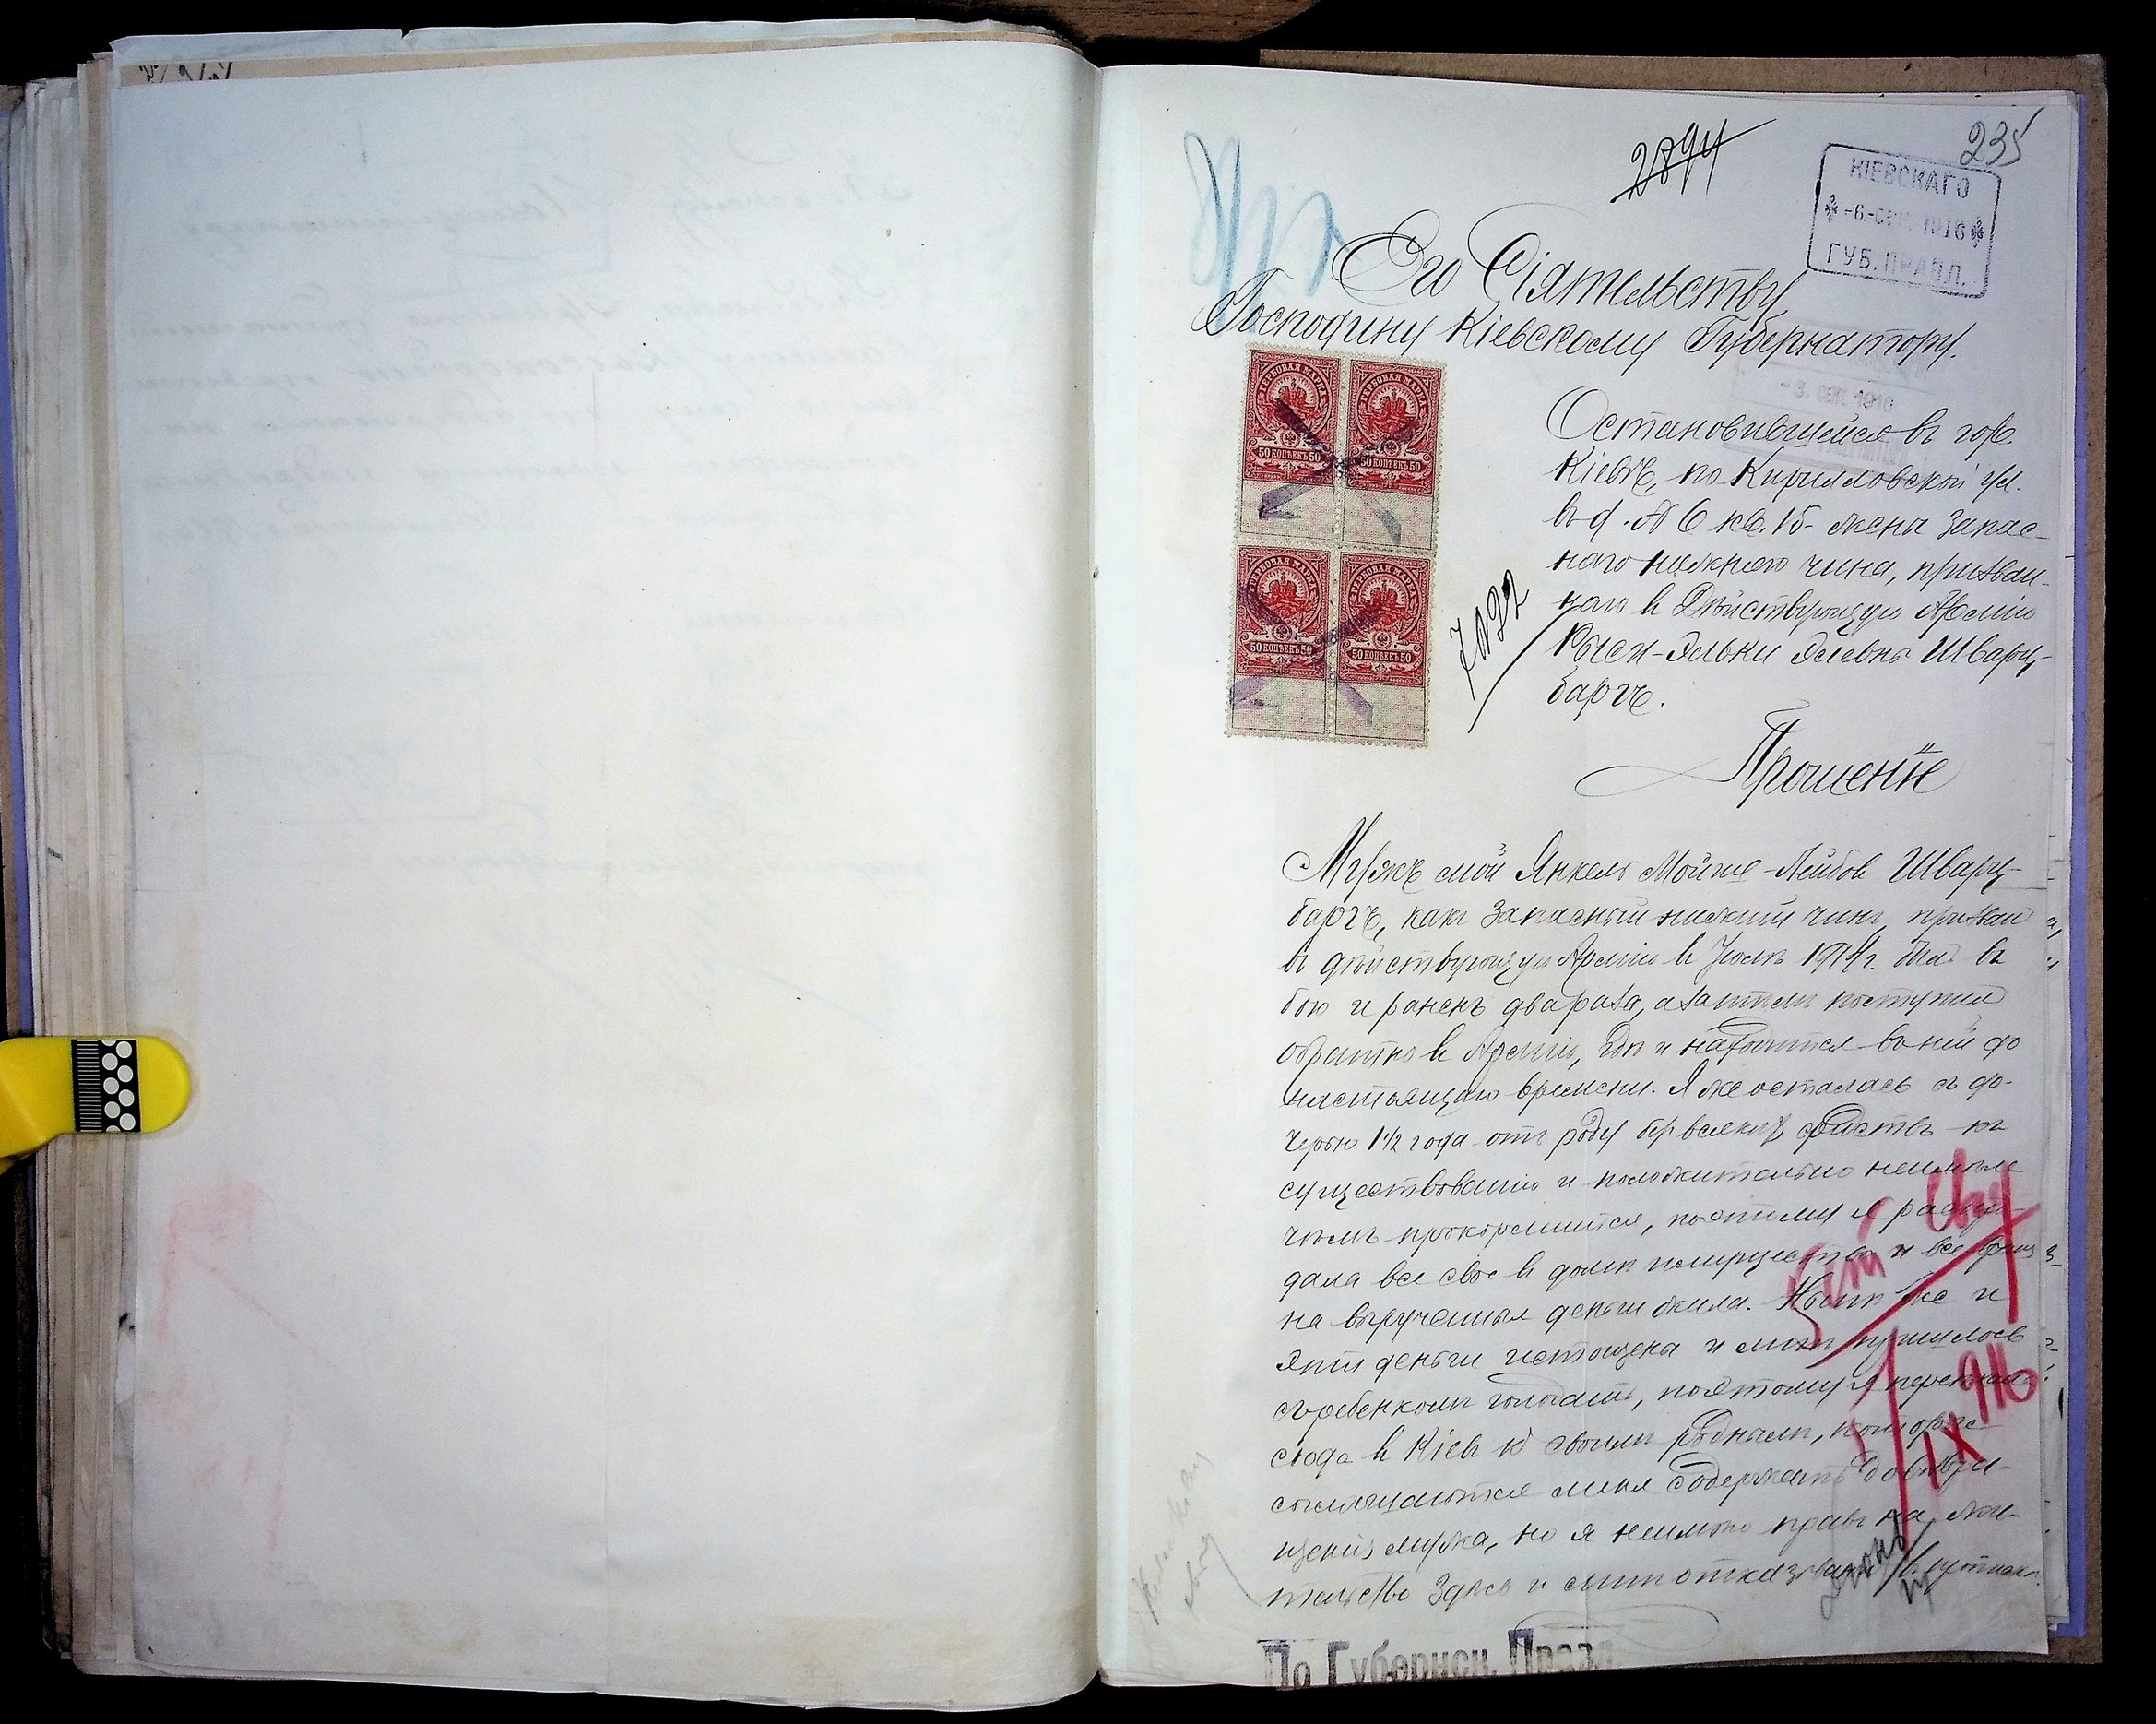 235
2894
КІЕВСКАГО
-6.-СЕН. 1916
ГУБ. ПРАВЛ.
Его Сіятельству
Господину Кіевскому Губернатору.
-3. СЕН. 1916
ГЕРБОВАЯ МАРКА ГЕРБОВАЯ МАРКА
50 КОПѢЕКЪ 50 50 КОПѢЕКЪ 50
ГЕРБОВАЯ МАРКА ГЕРБОВАЯ МАРКА
50 КОПѢЕКЪ 50 50 КОПѢЕКЪ 50
Остановившейся въ гор.
Кіевѣ, по Кирилловской ул.
въ д. № 6 кв. 15- жена запас-
наго нижняго чина, призван-
наго в Дѣйствующую Армію
Эльки Шварц-
баргъ.
Прошеніе
Мужъ мой Янкель Мойше-Лейбов Шварц-
баргъ, какъ запасный нижній чинъ, призван
въ дѣйствующую Армію в Іюлѣ 1914 г. былъ въ
бою и раненъ два раза, а затѣмъ поступил
обратно в Армію, гдѣ и находится в ней до
настоящаго времени. Я же осталась съ до-
черью 1 1/2 года отъ роду без всяких средствъ къ
существованію и положительно неимѣла
чѣмъ прокормиться, поэтому я распро-
дала все свое в домѣ имущество и все время
на вырученныя деньги жила. Нынѣ же и
эти деньги истощена и мнѣ пришлось
съ ребенкомъ голодать, поэтому я переѣхала
сюда в Кіевъ къ своимъ роднымъ, которые
соглашаются меня содержать до возвра-
щенія мужа, но я неимѣю правъ на жи-
тельство здѣсь и мнѣ отказываютъ
IX 916
По Губернск. Правл.